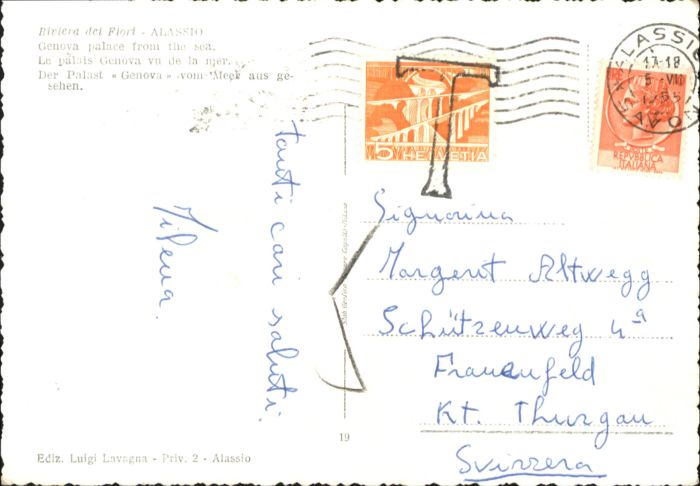 Riviera dei Fiori - ALASSIO
Genova palace from the sea.
Le pálais Genova vu de la mer.
Der Palast «Genova» vom Meek aus ge-
sehen.
tanti cari saluti.
Milena.
5 HELVETIA
T
ALASSIO
17-18
5 VII
POSTE
REPUBBLICA
ITALIANA
Signorina
Margert Altwegg
Schützenweg 4a
Frauenfeld
Kt. Thurgau
Svizzera
19
Ediz. Luigi Lavagna - Priv. 2 - Alassio